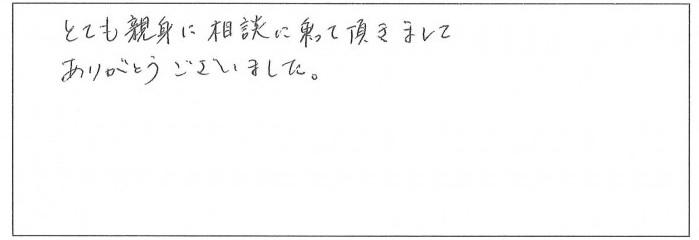 とても親身に相談に乗って頂きまして
ありがとうございました。